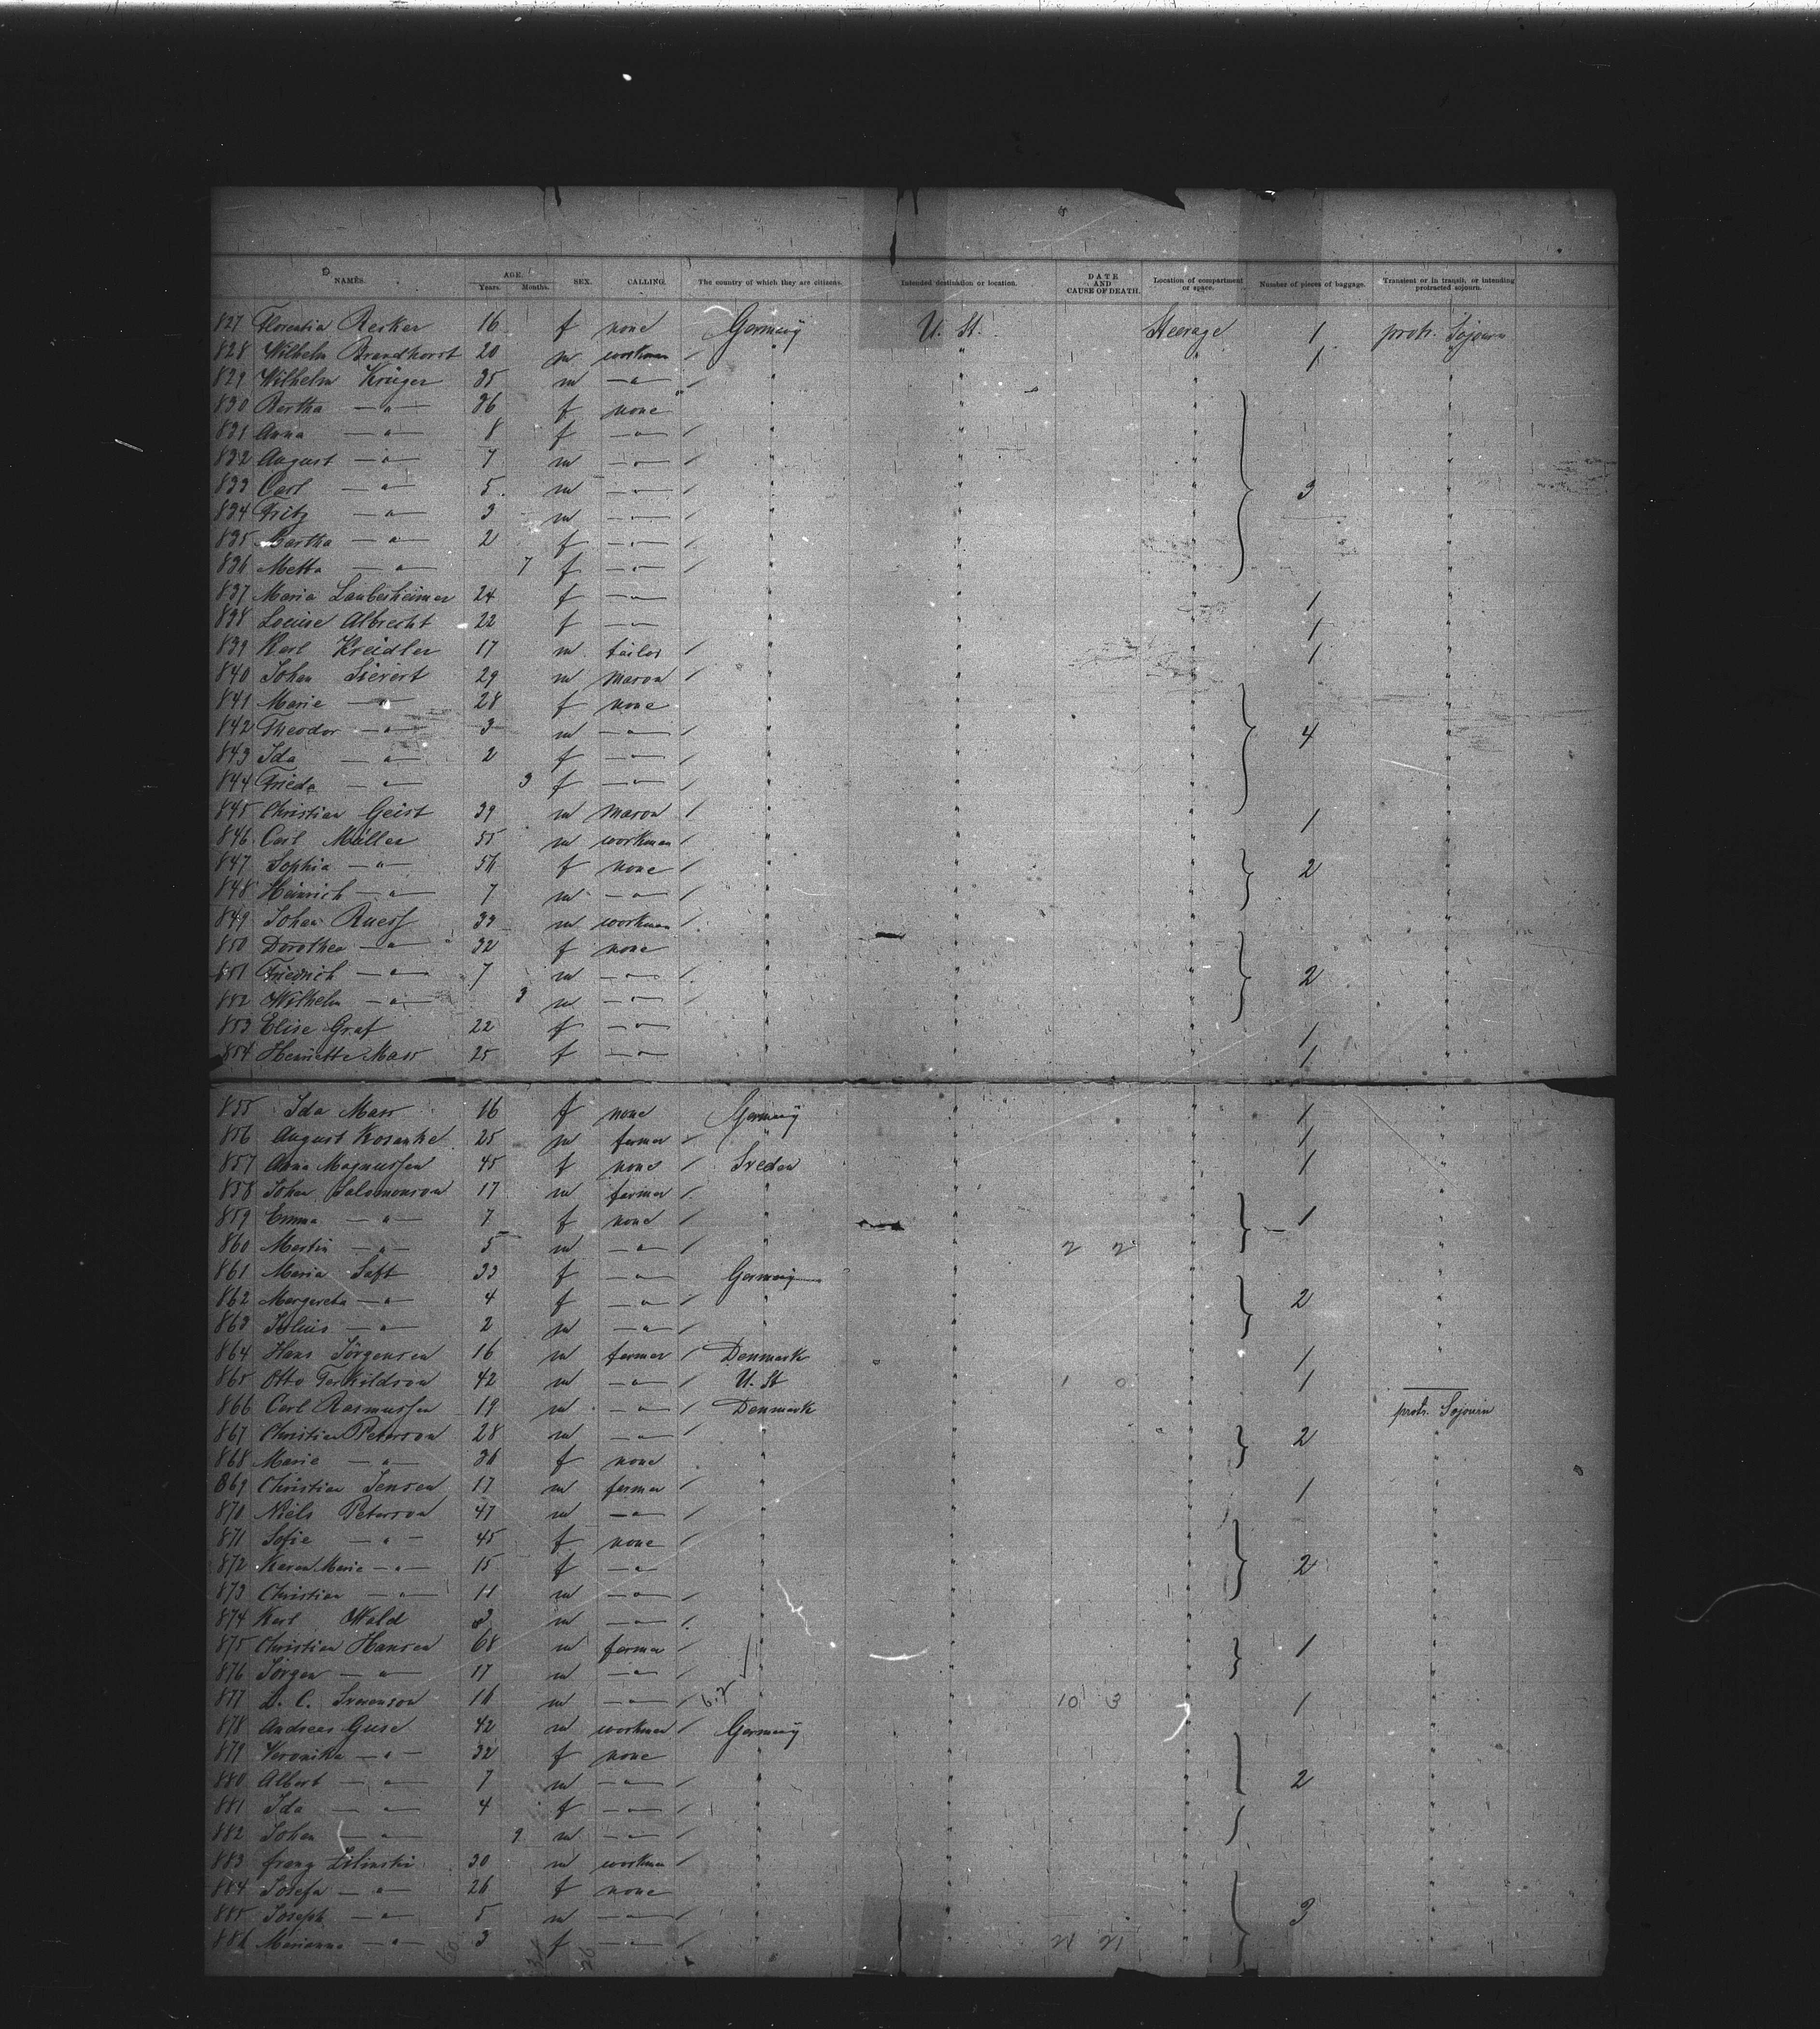 NAMES. AGE. Years. Months. SEX. CALLING. The country of which they are citizens. Intended destination or location. DATE AND CAUSE OF DEATH. Location of compartment or space. Number of pieces of baggage. Transient or in transit, or intending protracted sojourn.
827 Florentia Resker 16 f none Germany U. St. Steerage 1 protr. Sojourn
828 Wilhelm Brandhorst 20 m workman / " " " 1 "
829 Wilhelm Krüger 35 m —"— / " " " "
830 Bertha —"— 36 f none " " " "
831 Anna —"— 8 f —"— / " " " "
832 August —"— 7 m —"— / " " " "
833 Carl —"— 5 m —"— / " " " 3 "
834 Fritz —"— 3 m —"— / " " " "
835 Martha —"— 2 f —"— / " " " "
836 Metta —"— 7 f —"— / " " " "
837 Maria Laubesheimer 24 f —"— " " " 1 "
838 Louise Albrecht 22 f —"— " " " 1 "
839 Karl Kreidler 17 m tailor / " " " 1 "
840 Johan Sievert 29 m mason / " " " "
841 Marie —"— 28 f none " " " "
842 Theodor —"— 3 m —"— / " " " 4 "
843 Ida —"— 2 f —"— / " " " "
844 Frieda —"— 3 f —"— / " " " "
845 Christian Geist 39 m mason / " " " 1 "
846 Carl Müller 55 m workman / " " " "
847 Sophia —"— 56 f none / " " " 2 "
848 Heinrich —"— 7 m —"— / " " " "
849 Johan Ruess 33 m workman / " " " "
850 Dorothea —"— 32 f none " " " "
851 Friedrich —"— 7 m —"— / " " " 2 "
852 Wilhelm —"— 3 m —"— / " " " "
853 Elise Graf 22 f —"— " " " 1 "
854 Henriette Mass 25 f —"— " " " 1 "
855 Ida Mass 16 f none Germany " " 1 "
856 August Kosanke 25 m farmer / " " " 1 "
857 Anna Magnussen 45 f none / Sveden " " 1 "
858 Johan Salomonson 17 m farmer / " " " "
859 Emma —"— 7 f none / " " " 1 "
860 Martin —"— 5 m —"— / " " 2 2 " "
861 Maria Saft 33 f —"— Germany " " "
862 Margaretha —"— 4 f —"— / " " " 2 "
863 Julius —"— 2 m —"— / " " " "
864 Hans Jörgensen 16 m farmer / Denmark " " 1 "
865 Otto Terkildson 42 m —"— / U. St " 1 0 " 1 ——
866 Carl Rasmussen 19 m —"— / Denmark " " protr. Sojourn
867 Christian Peterson 28 m —"— / " " " 2 "
868 Marie —"— 36 f none " " " "
869 Christian Jensen 17 m farmer / " " " 1 "
870 Niels Peterson 47 m —"— / " " " "
871 Sofie —"— 45 f none / " " " "
872 Karen Marie —"— 15 f —"— " " " 2 "
873 Christian —"— 11 m —"— / " " " "
874 Karl Wald 3 m —"— / " " " "
875 Christian Hansen 68 m farmer / " " " 1 "
876 Jörgen —"— 17 m —"— / " " " "
877 L. C. Svenson 16 m —"— / " " 10 3 " 1 "
878 Andreas Guse 42 m workman / Germany " " "
879 Veronika —"— 32 f none " " " "
880 Albert —"— 7 m —"— / " " " 2 "
881 Ida —"— 4 f —"— / " " " "
882 Johan —"— 9 m —"— / " " " "
883 Franz Lilinski 30 m workman / " " " "
884 Josefa —"— 26 f none " " " "
885 Joseph —"— 5 m —"— / " " " 3 "
886 Marianna —"— 3 f —"— / " " 21 21 " "